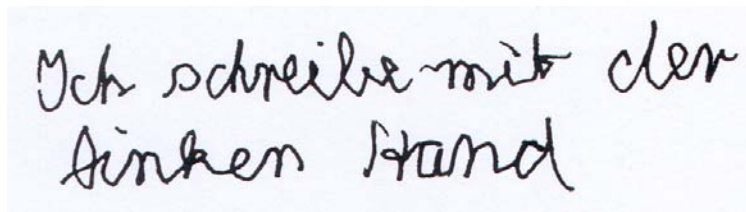 Ich schreibe mit der
linken Hand